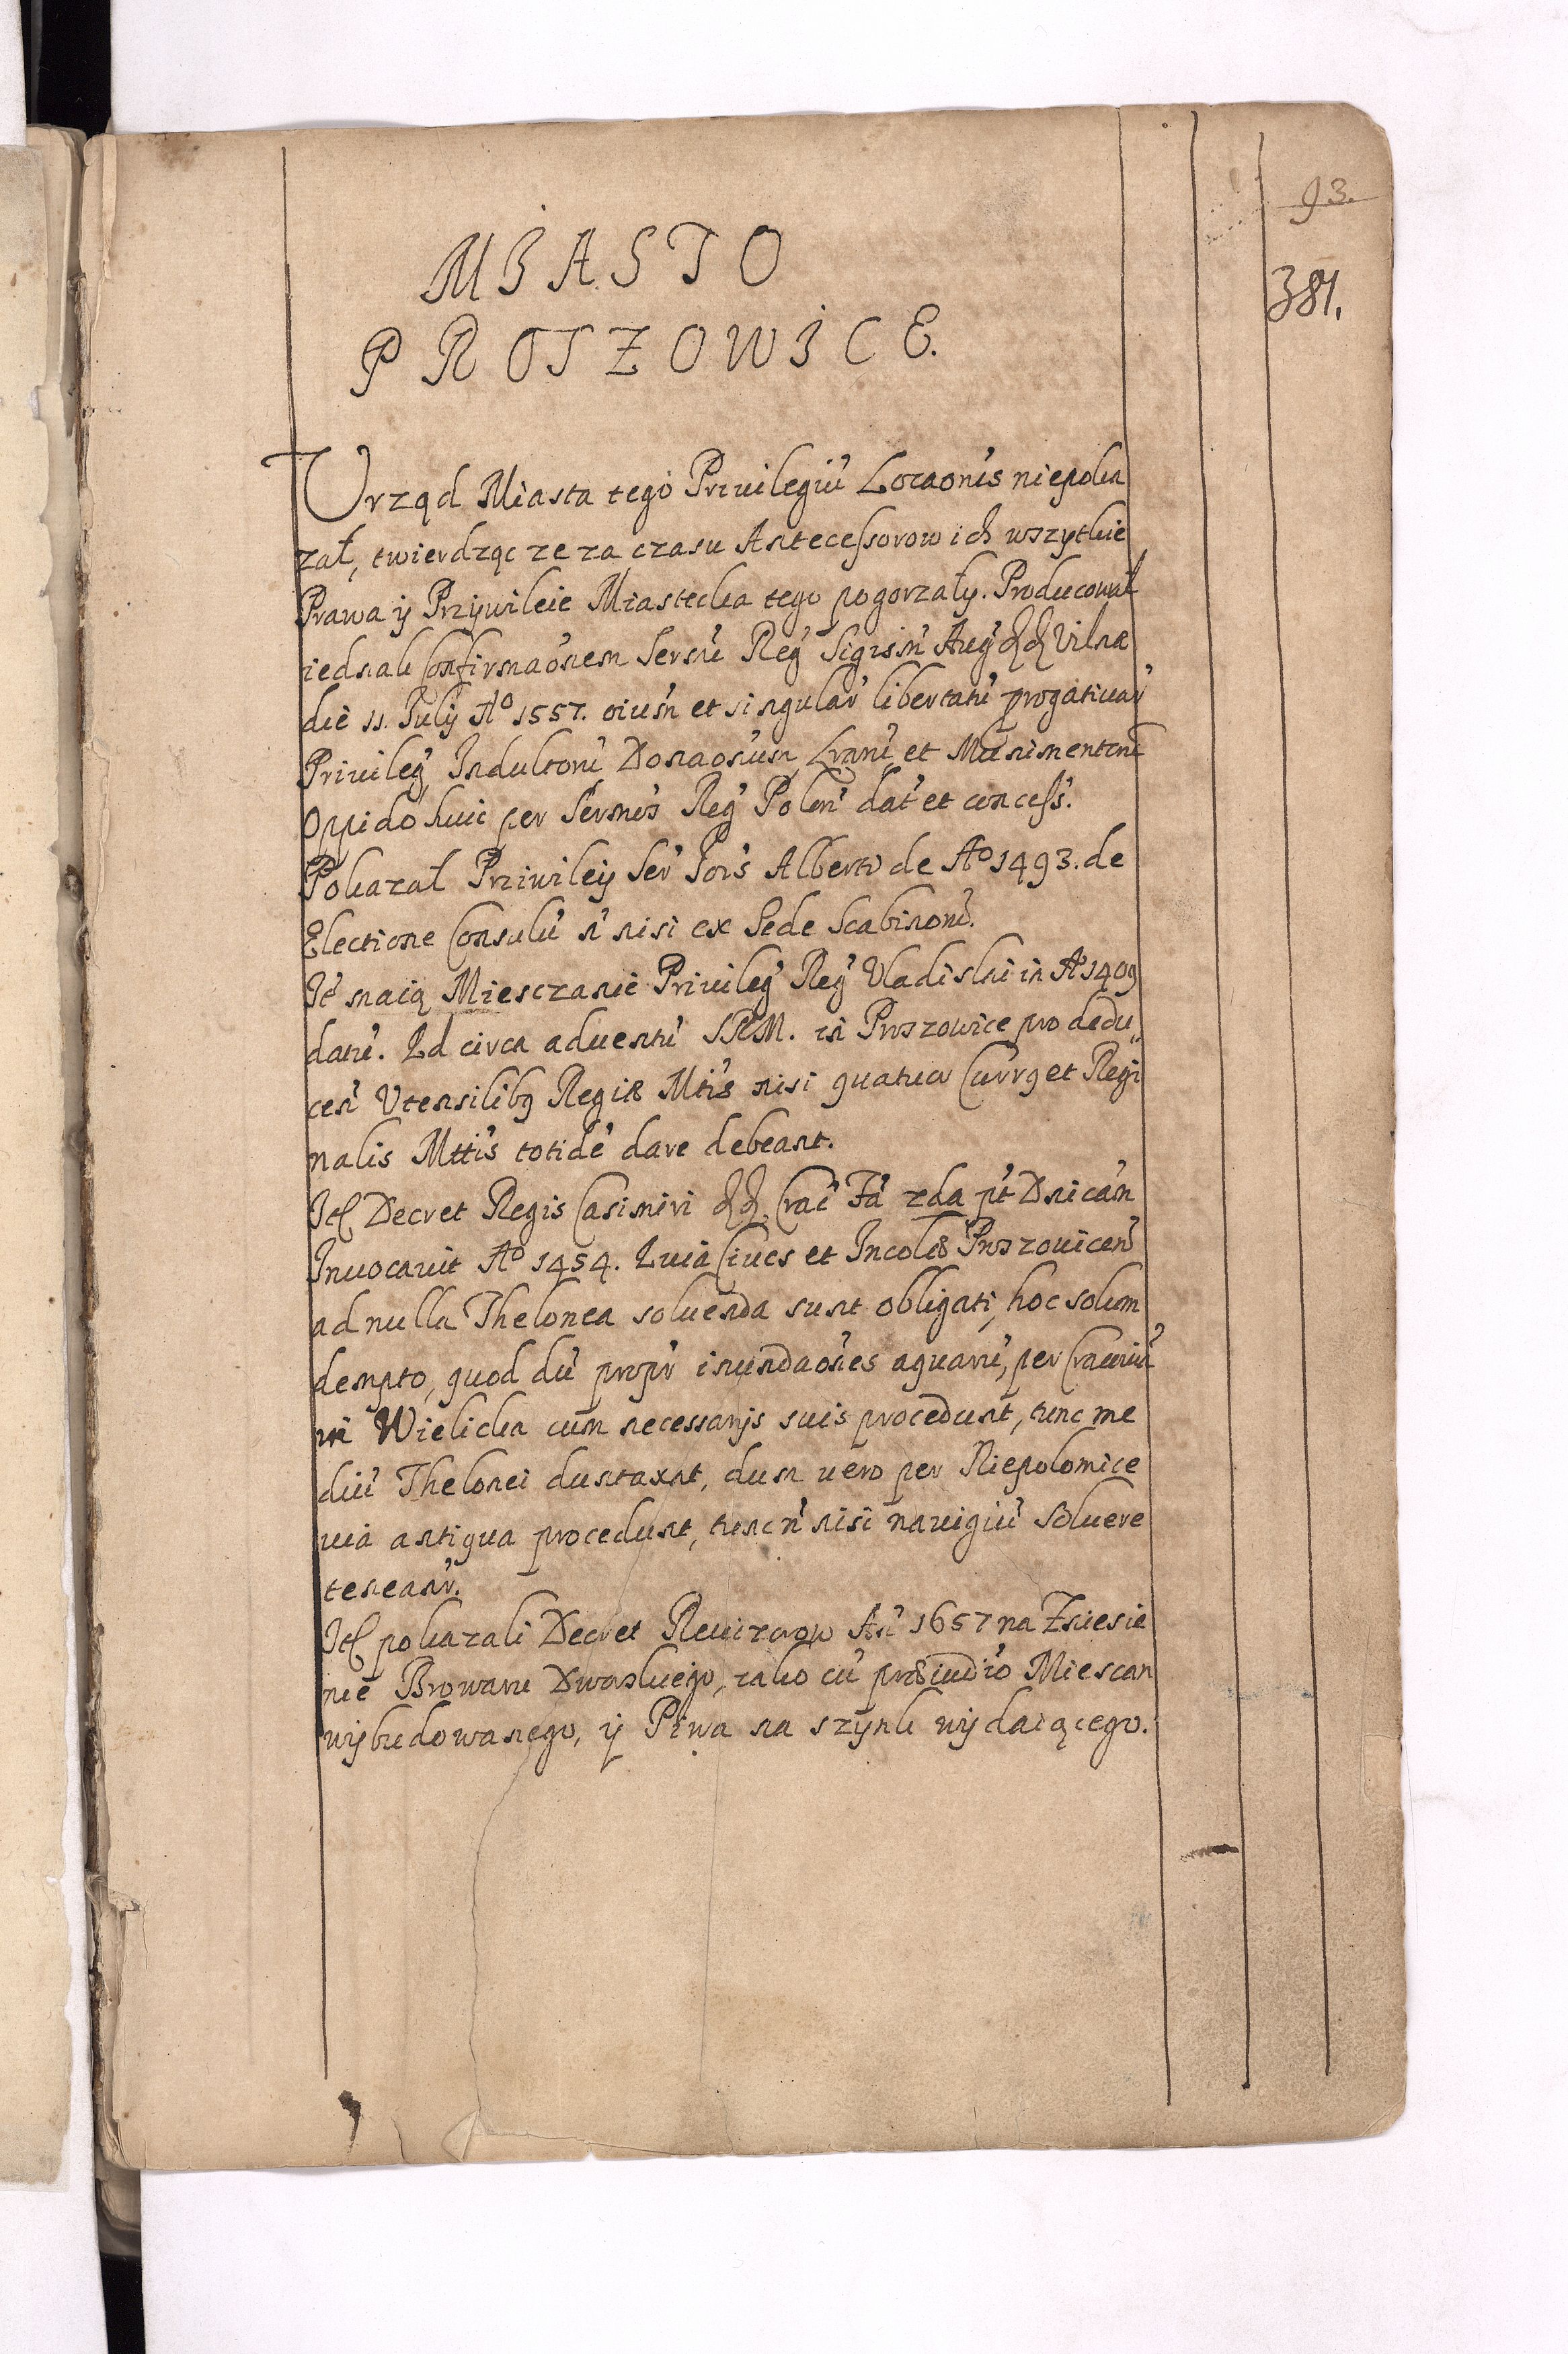 93.
381.
MIASTO
PROSZOWICE.
Urząd Miasta tego Privilegiu Locaonis niepoka
zał, twierdząc ze za czasu Antecessorow ich wszytkie
Prawa ij Przijwileie Miasteczka tego pogorzały. Producował
iednak Confirmaonem Sersmi Reg Sigism Aug dd Vilnæ
die 11. Julij Aº 1557. oium et singular libertatu progativar
Privileg Indultoru Donaonum Lraru et Munimentoru
Oppido huic per Sersmos Reg Polon dat et concess.
Pokazał Przivileij Ser Jois Alberti de Aº 1493. de
Electione Consulu n nisi ex Sede Scabinoru.
It maią Miesczanie Privileg Reg Vladislai in Aº 1409
datu. Id circa adventu SRM. in Proszowice pro dedu„
cen Utensilibq Regiæ Mtis nisi quatuor Currq et Regi
nalis Mttis totide dare debeant.
Itē Decret Regis Casimiri dd. Crac Fa 2da pt Dnicam
Invocavit Aº 1454. Quia Cives et Incolæ Proszovicen
ad nulla Thelonea solvenda sunt obligati, hoc solum
dempto, quod du propr inundaones aquaru, per Cracoviu
in Wieliczka cum necessarijs suis procedunt, tunc me
diu Thelonei duntaxat, dum vero per Niepolomice
via antiqua procedunt, tunc n nisi navigiu solvere
teneanr.
Itē pokazali Decret Revizorow An 1657 na Zniesie
nie Browaru Dworskiego, iako cu præiudio Miesczan
wijbudowanego, ij Piwa na szijnk wijdaiącego.